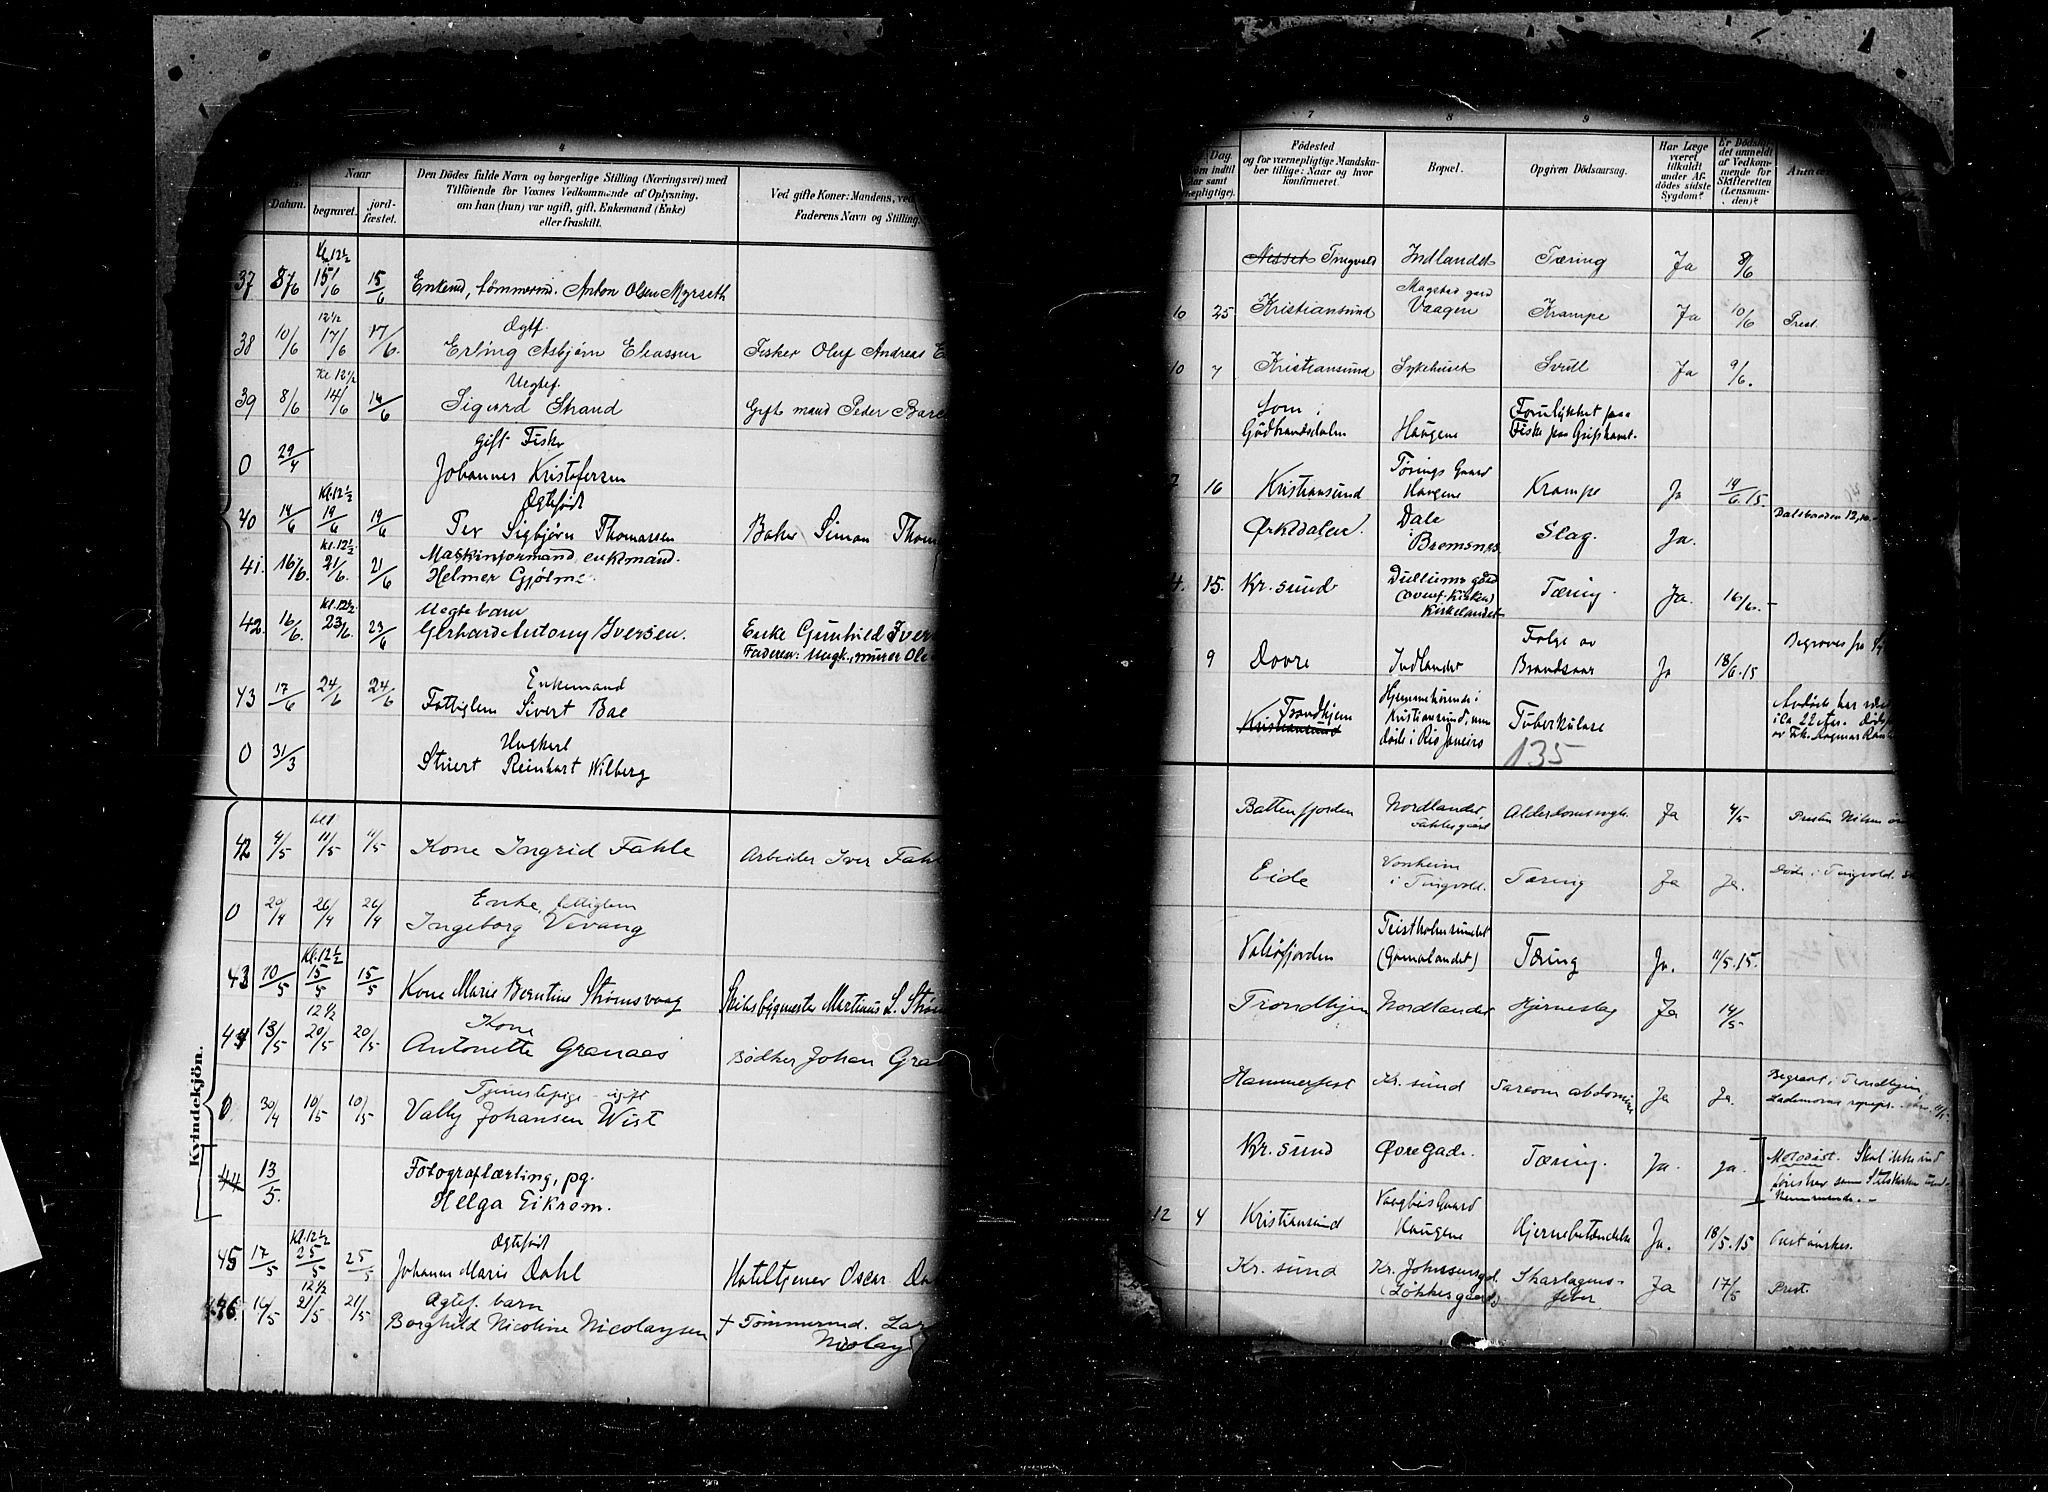 4
Naar
Datum.
begravet.
jord-
fæstet.
Den Dödes fulde Navn og borgerlige Stilling (Næringsvei) med
Tilföiende for Voxnes Vedkommende af Oplysning,
om han (hun) var ugift, gift, Enkemand (Enke)
eller fraskilt.
Ved gifte Koner: Mandens, ved
Faderens Navn og Stilling.
Kl. 12½
37 8/6 15/6 15/6 Enkemd, tømmermd. Anton Olsen Myrseth
12½ Ogtf.
38 10/6 17/6 17/6. Erling Asbjørn Eliassen Fisker Oluf Andreas E
Kl. 12½ Uegtef.
39 8/6 14/6 14/6 Sigurd Strand Gift mand Peder
Gift Fisker
0 29/4 Johannes Kristofersen
Kl. 12½ Ogtefødt
40 14/6 19/6 19/6 Per Sigbjørn Thomassen Baker Simon Thom
Kl. 12½ Maskinformand, enkemand.
41. 16/6. 21/6. 21/6 Helmer Gjølme.
Kl. 12½ Uegte barn
42. 16/6. 23/6. 23/6 Gerhard Antony Iversen. Enke Gunhild Iver
Faderen: Ungk., murer Ole
Enkemand
43 17/6 24/6 24/6 Fattiglem Sivert Bae
Ungkarl
0 31/3 Stuert Reinhart Wilberg
Kvindekjön.
42 4/5 11/5 11/5 Kone Ingrid Fahle Arbeider Iver Fahl
Enke, fattiglem
0 20/4 26/4 26/4 Ingeborg Vevang
Kl. 12½
43 10/5 15/5 15/5 Kone Marie Berntine Strømsvaag Skibsbygmester Martinus L. Strøm
12½ Kone
44 13/5 20/5 20/5 Antonette Granaas Bødker Johan Gra
Tjenestepige - ugift
0. 30/4 10/5 10/5 Vally Johansen Wist
44 13/5. Fotograflærling, pg.
Helga Eikrem.
Kl. 12½ Ogtefødt
45 17/5 25/5 25/5 Johanne Marie Dahl Hoteltjener Oscar Da
12½ Ogtef. barn
46. 16/5 21/5 21/5 Borghild Nicoline Nicolaysen + Tømmermd. Lar
Nicolay
7 8 9
Dag
Födested
og for værnepligtige Mandska-
ber tillige: Naar og hvor
konfirmeret.
Bopæl.
Opgiven Dödsaarsag.
Har Læge
været
tilkaldt
under Af-
dödes sidste
Sygdom?
Er Dödsfal-
det anmeldt
af Vedkom-
mende for
Skifteretten
(Lensman-
den)?
Nesset Tingvold Indlandet Tæring Ja 8/6
Magstad gaard
10 25 Kristiansund Vaagen Krampe Ja 10/6 Prest.
10 7 Kristiansund Sykehuset Svull Ja 9/6.
Lom i Forulykket paa
Gudbrandsdalen Haugene Fiske paa Griphavet.
Tørings Gaard
16 Kristiansund Haugene Krampe Ja 14/6.15.
Dale
Ørkedalen. i Bremsnes Slag. Ja.
Dulliums gård
4. 15. Kr. sund (overf. Kirken) Tæring. Ja. 16/6.-
Kirkelandet
Følge av
9 Dovre Indlandet Brandsaar Ja 18/6.15 Begraves fra
Trondhjem Hjemmehørende i
Kristiansund Kristiansund, men Tuberkulose
døde i Rio Janeiro
135
Battenfjorden Nordlandet Alderdomssvagh. Ja 4/5 Presten Nilsen
Fahlesgaard
Eide Vonheim Tæring Ja Ja. Døde i Tingvold.
i Tingvold.
Valsøfjorden Teistholmsundet Tæring Ja. 11/5.15.
(Gomalandet)
Trondhjem Nordlandet Hjerneslag Ja 14/5
Hammerfest Kr. sund Sarcom abdomine Ja Ja. Begravet i Trondhjem,
Lademoens
Kr. sund Øvregade. Tæring. Ja. Ja. Metodist. Skal ikke ind
føres her
Vaagbøs Gaard
12 4 Kristiansund Haugene Hjernebetændelse Ja. 18/5.15
Kr. sund Kr. Johnsensgd. Skarlagens- Ja 17/5 Prest.
(Løkkesgaard) feber